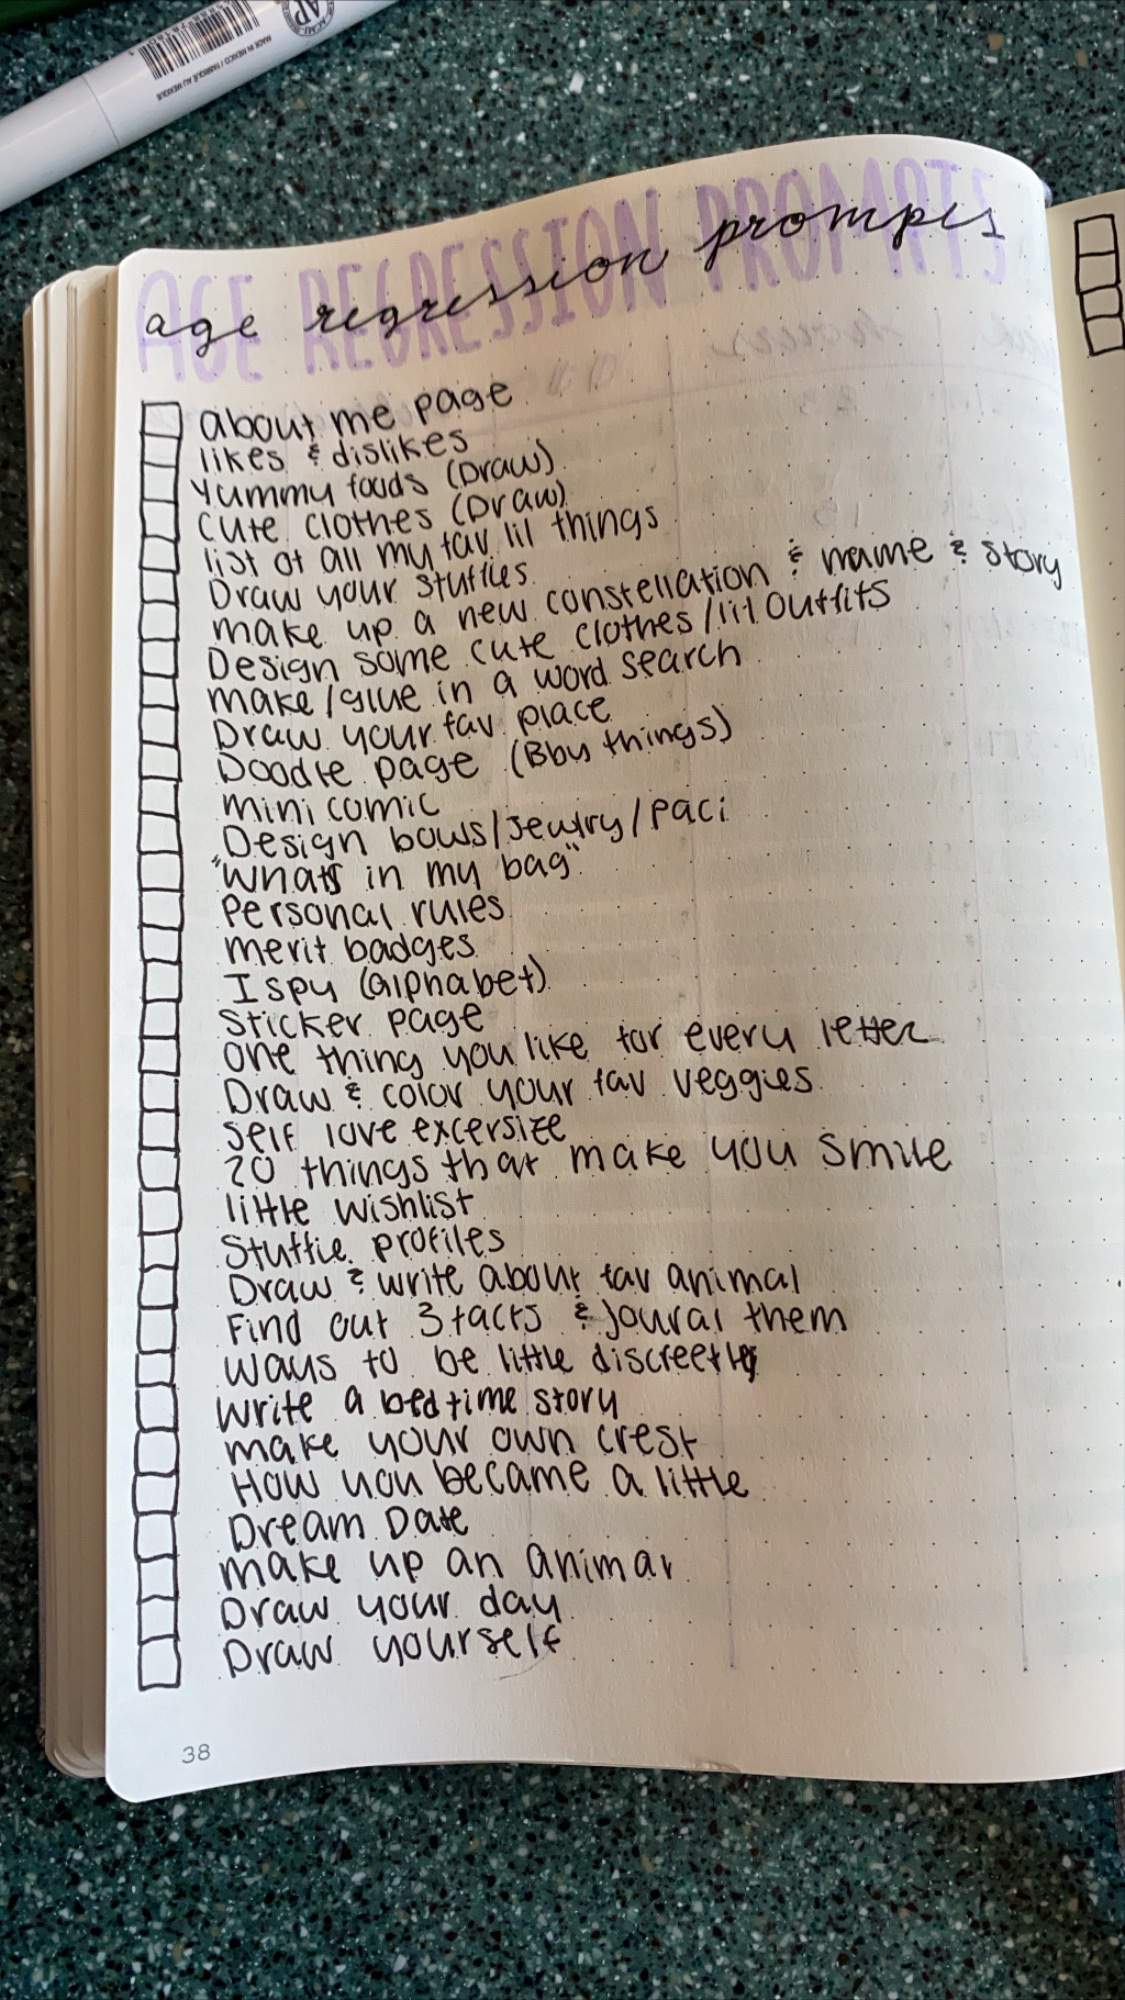 MADE IN MEXICO / FABRIQUÉ AU MEXIQUE
AP
AGE REGRESSION PROMPTS
age regression prompts
about me page
likes & dislikes
Yummy foods (Draw)
cute clothes (Draw)
list of all my fav lil things
Draw your stuffies
make up a new constellation & name & story
Design some cute clothes/lil outfits
make/glue in a word search
Draw your fav place
Doodle page (Bby things)
mini comic
Design bows/jewlry/paci
"whats in my bag"
Personal rules
merit badges
I spy (alphabet)
sticker page
one thing you like for every letter
Draw & color your fav veggies
self love excersize
20 things that make you smile
little wishlist
Stuffie profiles
Draw & write about fav animal
Find out 3 facts & joural them
ways to be little discreetly
write a bedtime story
make your own crest
How you became a little
Dream Date
make up an animal
Draw your day
Draw yourself
38